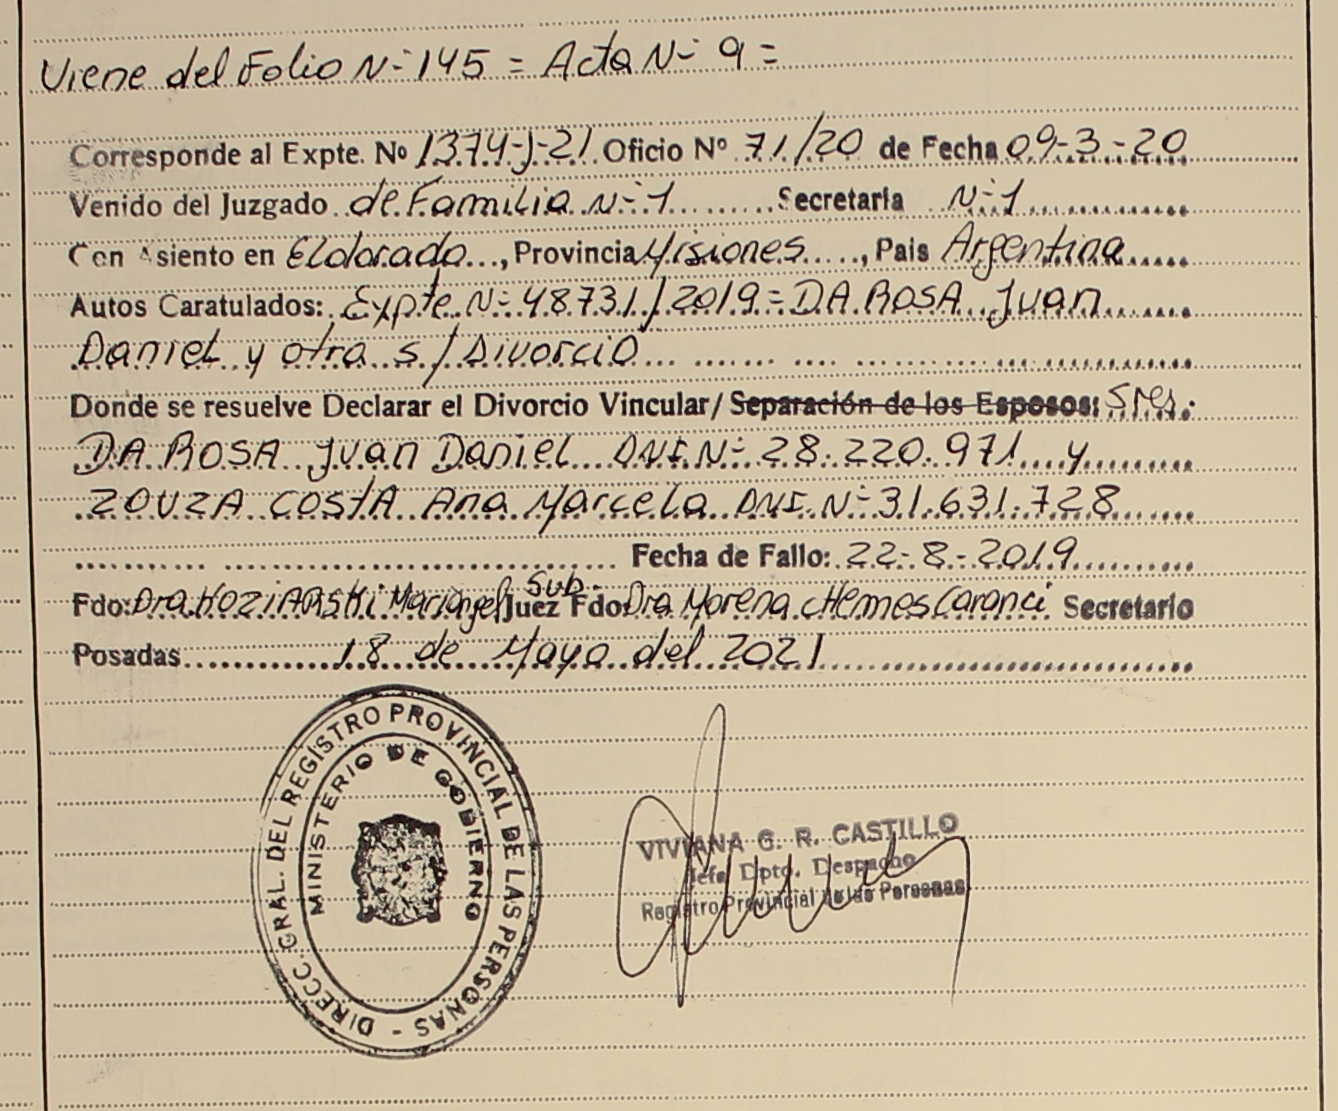 Viene del Folio N-145 = Acta N- 9 =
Corresponde al Expte. Nº 1374-J-21 Oficio Nº 71/20 de Fecha 09-3-20
Venido del Juzgado de Familia N-1 Secretaria N-1
Con Asiento en Eldorado, Provincia Misiones, Pais Argentina
Autos Caratulados: Expte N- 48731/2019 = DA ROSA Juan
Daniel y otra s/Divorcio
Donde se resuelve Declarar el Divorcio Vincular/ Separación de los Esposos: Sres.
DA ROSA Juan Daniel DNI N- 28.220.971 y
ZOUZA COSTA Ana Marcela DNI N-31.631.728
Fecha de Fallo: 22-8-2019
Fdo: Dra. KOZIARSKI Mariangel Juez Sub. Fdo: Dra Morena Hermes Caranci Secretario
Posadas 18 de Mayo del 2021
DIRECC. GRAL. DEL REGISTRO PROVINCIAL DE LAS PERSONAS -
MINISTERIO DE GOBIERNO
VIVIANA G. R. CASTILLO
Jefe Dpto. Despacho
Registro Provincial de las Personas